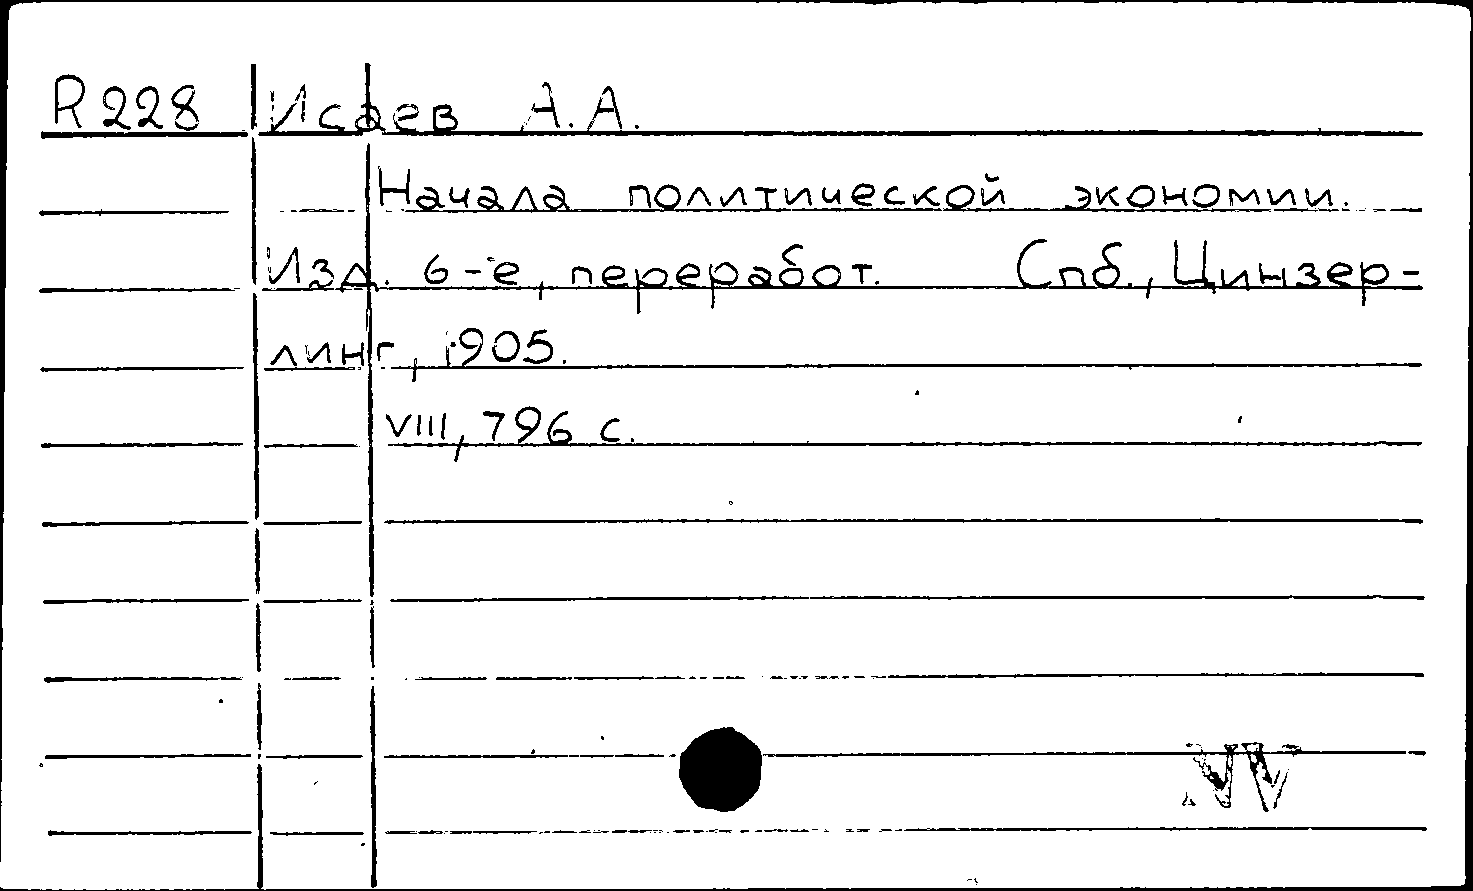 R228 Исаев А.А.
Начала политической экономии.
Изд. 6-е, переработ. Спб., Цинзер-
линг, 1905.
VIII, 796 с.